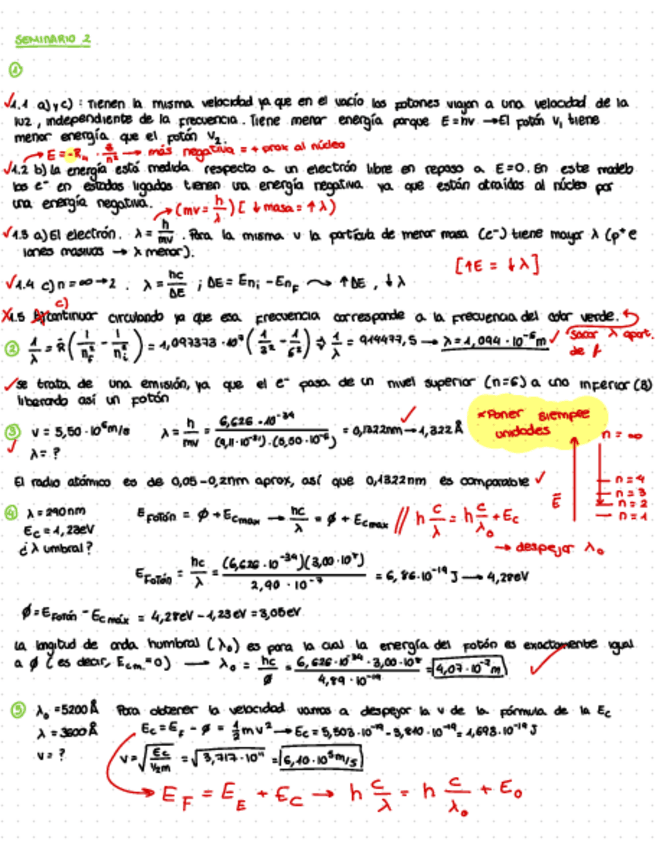 SEMINARIO 2
①
✓1.1 a) y c) : Tienen la misma velocidad ya que en el vacío los fotones viajan a una velocidad de la
luz, independiente de la frecuencia. Tiene menor energía porque E=hν → El fotón V₁ tiene
menor energía que el fotón V₂.
→ E = -R_H · → más negativa = + prox al núcleo
✓1.2 b) la energía está medida respecto a un electrón libre en reposo a E=0. En este modelo
los e⁻ en estados ligados tienen una energía negativa ya que están atraídos al núcleo por
una energía negativa.
→ (mv = h/λ) [ ↓ masa = ↑ λ)
✓1.3 a) El electrón. λ = h/mv . Para la misma v la partícula de menor masa (e⁻) tiene mayor λ (p⁺ e
iones masivos → λ menor).
[↑E = ↓λ]
✓1.4 c) n = ∞ → 2 . λ = hc/ΔE ; ΔE = En_i - En_f ↑ΔE , ↓λ
c)
X1.5 continuar circulando ya que esa frecuencia corresponde a la frecuencia del color verde.
Sacar λ apart.
de f
② 1/λ = R (1/n_f² - 1/n_i²) = 1,097373 · 10⁷ (1/3² - 1/6²) ⇒ 1/λ = 914477,5 → λ = 1,094 · 10⁻⁶ m ✓
✓ se trata de una emisión, ya que el e⁻ pasa de un nivel superior (n=6) a uno inferior (3)
liberando así un fotón
* Poner siempre
unidades
③ v = 5,50 · 10⁶ m/s λ = h/mv = 6,626 · 10⁻³⁴ / (9,11 · 10⁻³¹) · (5,50 · 10⁻⁶) = 0,1322nm → 1,322 Å ✓
✓ λ = ?
El radio atómico es de 0,05-0,2nm aprox, así que 0,1322nm es comparable ✓
n = ∞
n = 4
n = 3
n = 2
n = 1
E
④ λ = 290nm E Fotón = ϕ + Ec max → hc/λ = ϕ + Ec max // h c/λ = h c/λ₀ + Ec
Ec = 1,23eV
¿λ umbral?
→ despejar λ₀
E Fotón = hc/λ = (6,626 · 10⁻³⁴)(3,00 · 10⁸) / 2,90 · 10⁻⁷ = 6,86 · 10⁻¹⁹ J → 4,28eV
ϕ = E Fotón - Ec máx = 4,28eV - 1,23eV = 3,05eV
La longitud de onda humbral (λ₀) es para la cual la energía del fotón es exactamente igual
a ϕ (es decir, Ecm = 0) → λ₀ = hc/ϕ = 6,626 · 10⁻³⁴ · 3,00 · 10⁸ / 4,89 · 10⁻¹⁹ = 4,07 · 10⁻⁷ m ✓
⑤ λ₀ = 5200 Å Para obtener la velocidad vamos a despejar la v de la fórmula de la Ec
λ = 3600 Å Ec = E_F - ϕ = 1/2 mv² → Ec = 5,503 · 10⁻¹⁹ - 3,810 · 10⁻¹⁹ = 1,693 · 10⁻¹⁹ J
v = ? v = √(Ec / ½m) = √(3,717 · 10¹¹) = 6,10 · 10⁵ m/s
→ E_F = E_E + E_C → h c/λ = h c/λ₀ + E₀